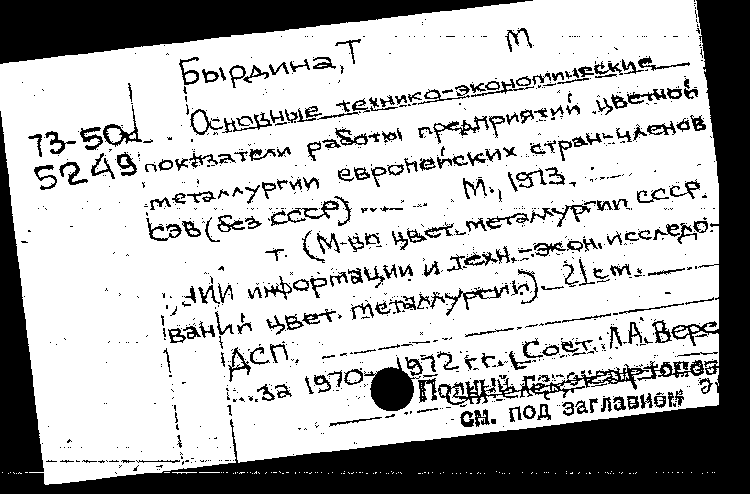 Бырдина, Т М
73-50к
5249
Основные технико-экономические
показатели работы предприятий цветной
металлургии европейских стран-членов
СЭВ (без СССР) .... М., 1973.
т. (М-во цвет. металлургии СССР.
НИИ информации и техн.-экон. исследо-
ваний цвет. металлургии). 21 cm.
ДСП.
...за 1970-1972 гг. [Сост. Л.А. Вере
Полный
см. под заглавием